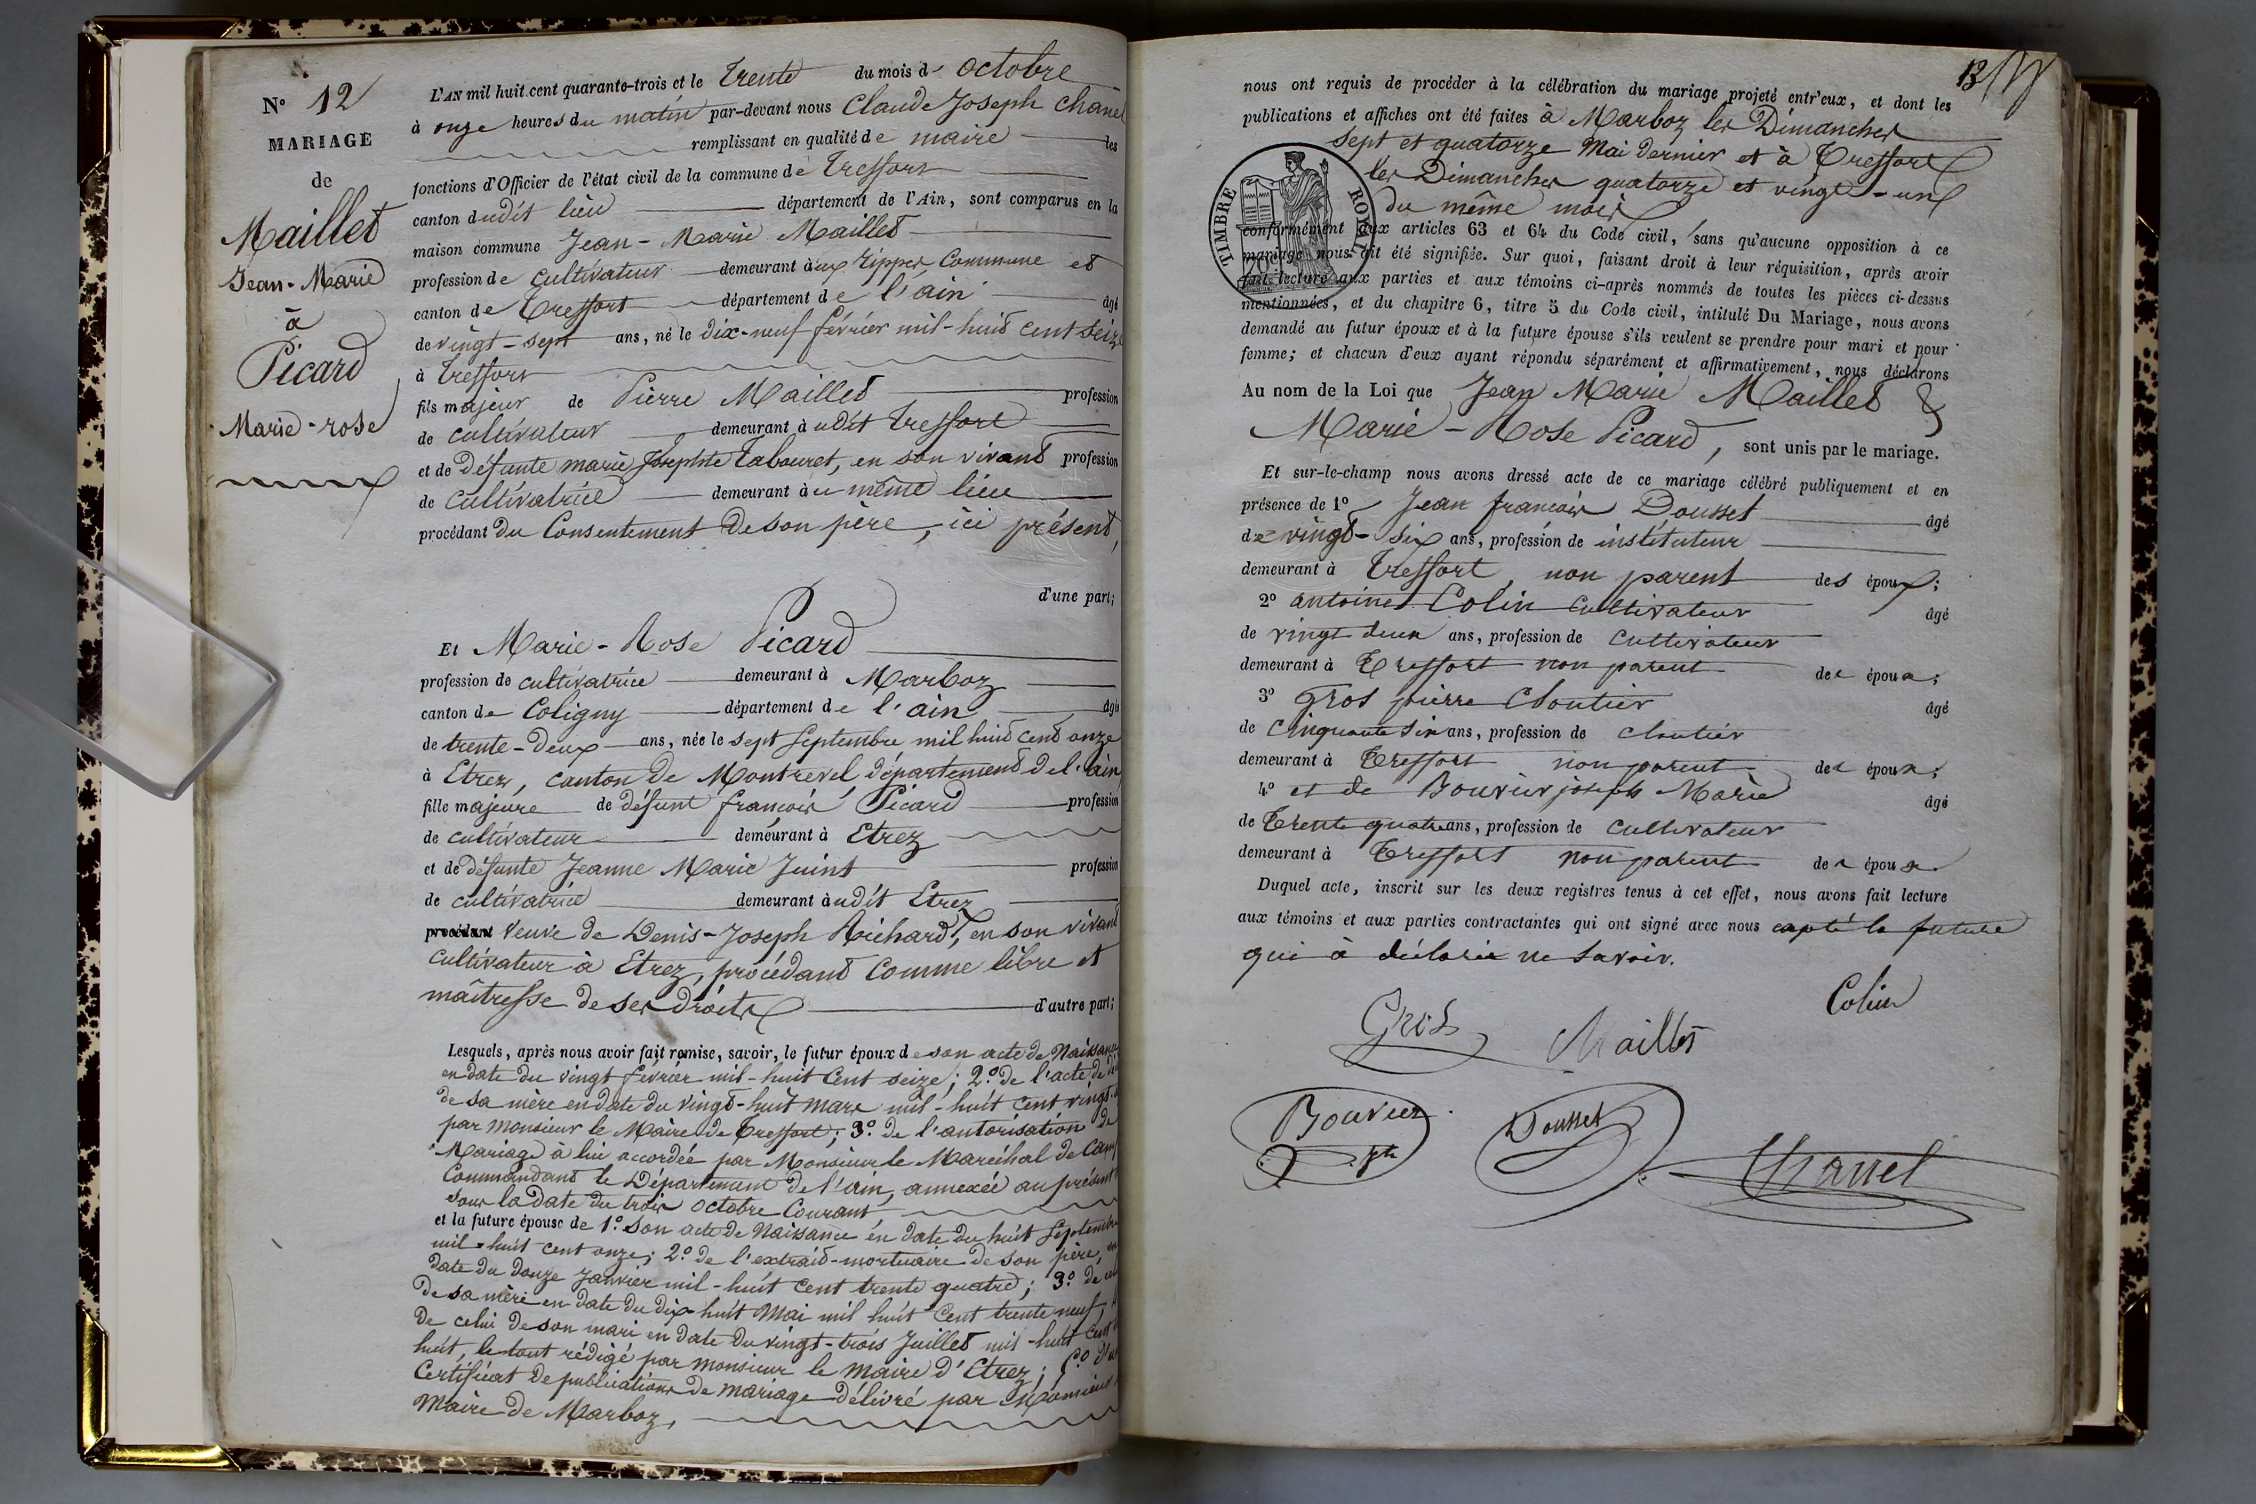 N° 12
MARIAGE
de
Maillet
Jean-Marie
à
Picard
Marie-rose
L'AN mil huit cent quarante-trois et le trente du mois d'octobre
à onze heures du matin par-devant nous Claude Joseph Chanel
remplissant en qualité de maire les
fonctions d'Officier de l'état civil de la commune de Treffort
canton dudit lieu département de l'Ain, sont comparus en la
maison commune Jean-Marie Maillet
profession de cultivateur demeurant aux Rippes, Commune et
canton de Treffort département de l'ain âgé
de vingt-sept ans, né le dix-neuf février mil-huit cent seize
à Treffort
fils majeur de Pierre Maillet profession
de cultivateur demeurant audit Treffort
et de défunte marie Josephte Tabouret, en son vivant profession
de cultivatrice demeurant au même lieu
procédant du Consentement de son père, ici présent,
d'une part;
Et Marie-Rose Picard
profession de cultivatrice demeurant à Marboz
canton de Coligny département de l'ain âgée
de trente-deux ans, née le sept Septembre mil huit cent onze
à Etrez, canton de Montrevel, département de l'ain
fille majeure de défunt françois Picard profession
de cultivateur demeurant à Etrez
et de défunte Jeanne Marie Juint profession
de cultivatrice demeurant audit Etrez
procédant veuve de Denis-Joseph Richard, en son vivant
cultivateur à Etrez, procédant comme libre et
maîtresse de ses droits d'autre part;
Lesquels, après nous avoir fait remise, savoir, le futur époux de son acte de Naissance
en date du vingt février mil-huit cent seize; 2.° de l'acte de
de sa mère en date du vingt-huit mars mil-huit cent vingt
par monsieur le Maire de Treffort; 3.° de l'autorisation de
Mariage à lui accordée par Monsieur le Maréchal de Camp
Commandant le Département de l'ain, annexée au présent
sous la date du trois octobre Courant
et la future épouse de 1.° Son acte de Naissance en date du huit Septembre
mil-huit cent onze; 2.° de l'extrait-mortuaire de son père, en
date du douze Janvier mil-huit cent trente quatre; 3.° de
de sa mère en date du dix-huit Mai mil huit cent trente neuf,
de celui de son mari en date du vingt-trois Juillet mil-huit cent
huit, le tout rédigé par monsieur le Maire d'Etrez;
Certificat de publications de mariage délivré par Monsieur
Maire de Marboz,
13
nous ont requis de procéder à la célébration du mariage projeté entr'eux, et dont les
publications et affiches ont été faites à Marboz les Dimanches
sept et quatorze Mai dernier et à Treffort
les Dimanches quatorze et vingt-un
du même mois
TIMBRE ROYAL
conformément aux articles 63 et 64 du Code civil, sans qu'aucune opposition à ce
mariage nous ait été signifiée. Sur quoi, faisant droit à leur réquisition, après avoir
fait lecture aux parties et aux témoins ci-après nommés de toutes les pièces ci-dessus
mentionnées, et du chapitre 6, titre 5 du Code civil, intitulé Du Mariage, nous avons
demandé au futur époux et à la future épouse s'ils veulent se prendre pour mari et pour
femme; et chacun d'eux ayant répondu séparément et affirmativement, nous déclarons
Au nom de la Loi que Jean Marie Maillet &
Marie-Rose Picard, sont unis par le mariage.
Et sur-le-champ nous avons dressé acte de ce mariage célébré publiquement et en
présence de 1° Jean françois Dousset âgé
de vingt-six ans, profession de instituteur
demeurant à Treffort, non parent des époux;
2° antoine Colin cultivateur âgé
de vingt deux ans, profession de cultivateur
demeurant à Treffort non parent des époux;
3° Gros pierre Cloutier âgé
de Cinquante Six ans, profession de cloutier
demeurant à Treffort non parent des époux;
4° et de Bouvier joseph Marie âgé
de Trente quatre ans, profession de cultivateur
demeurant à Treffort non parent des époux
Duquel acte, inscrit sur les deux registres tenus à cet effet, nous avons fait lecture
aux témoins et aux parties contractantes qui ont signé avec nous capté la future
qui à déclarée ne Savoir.
Colin
Gros Maillet
Bouvier Dousset
Chanel